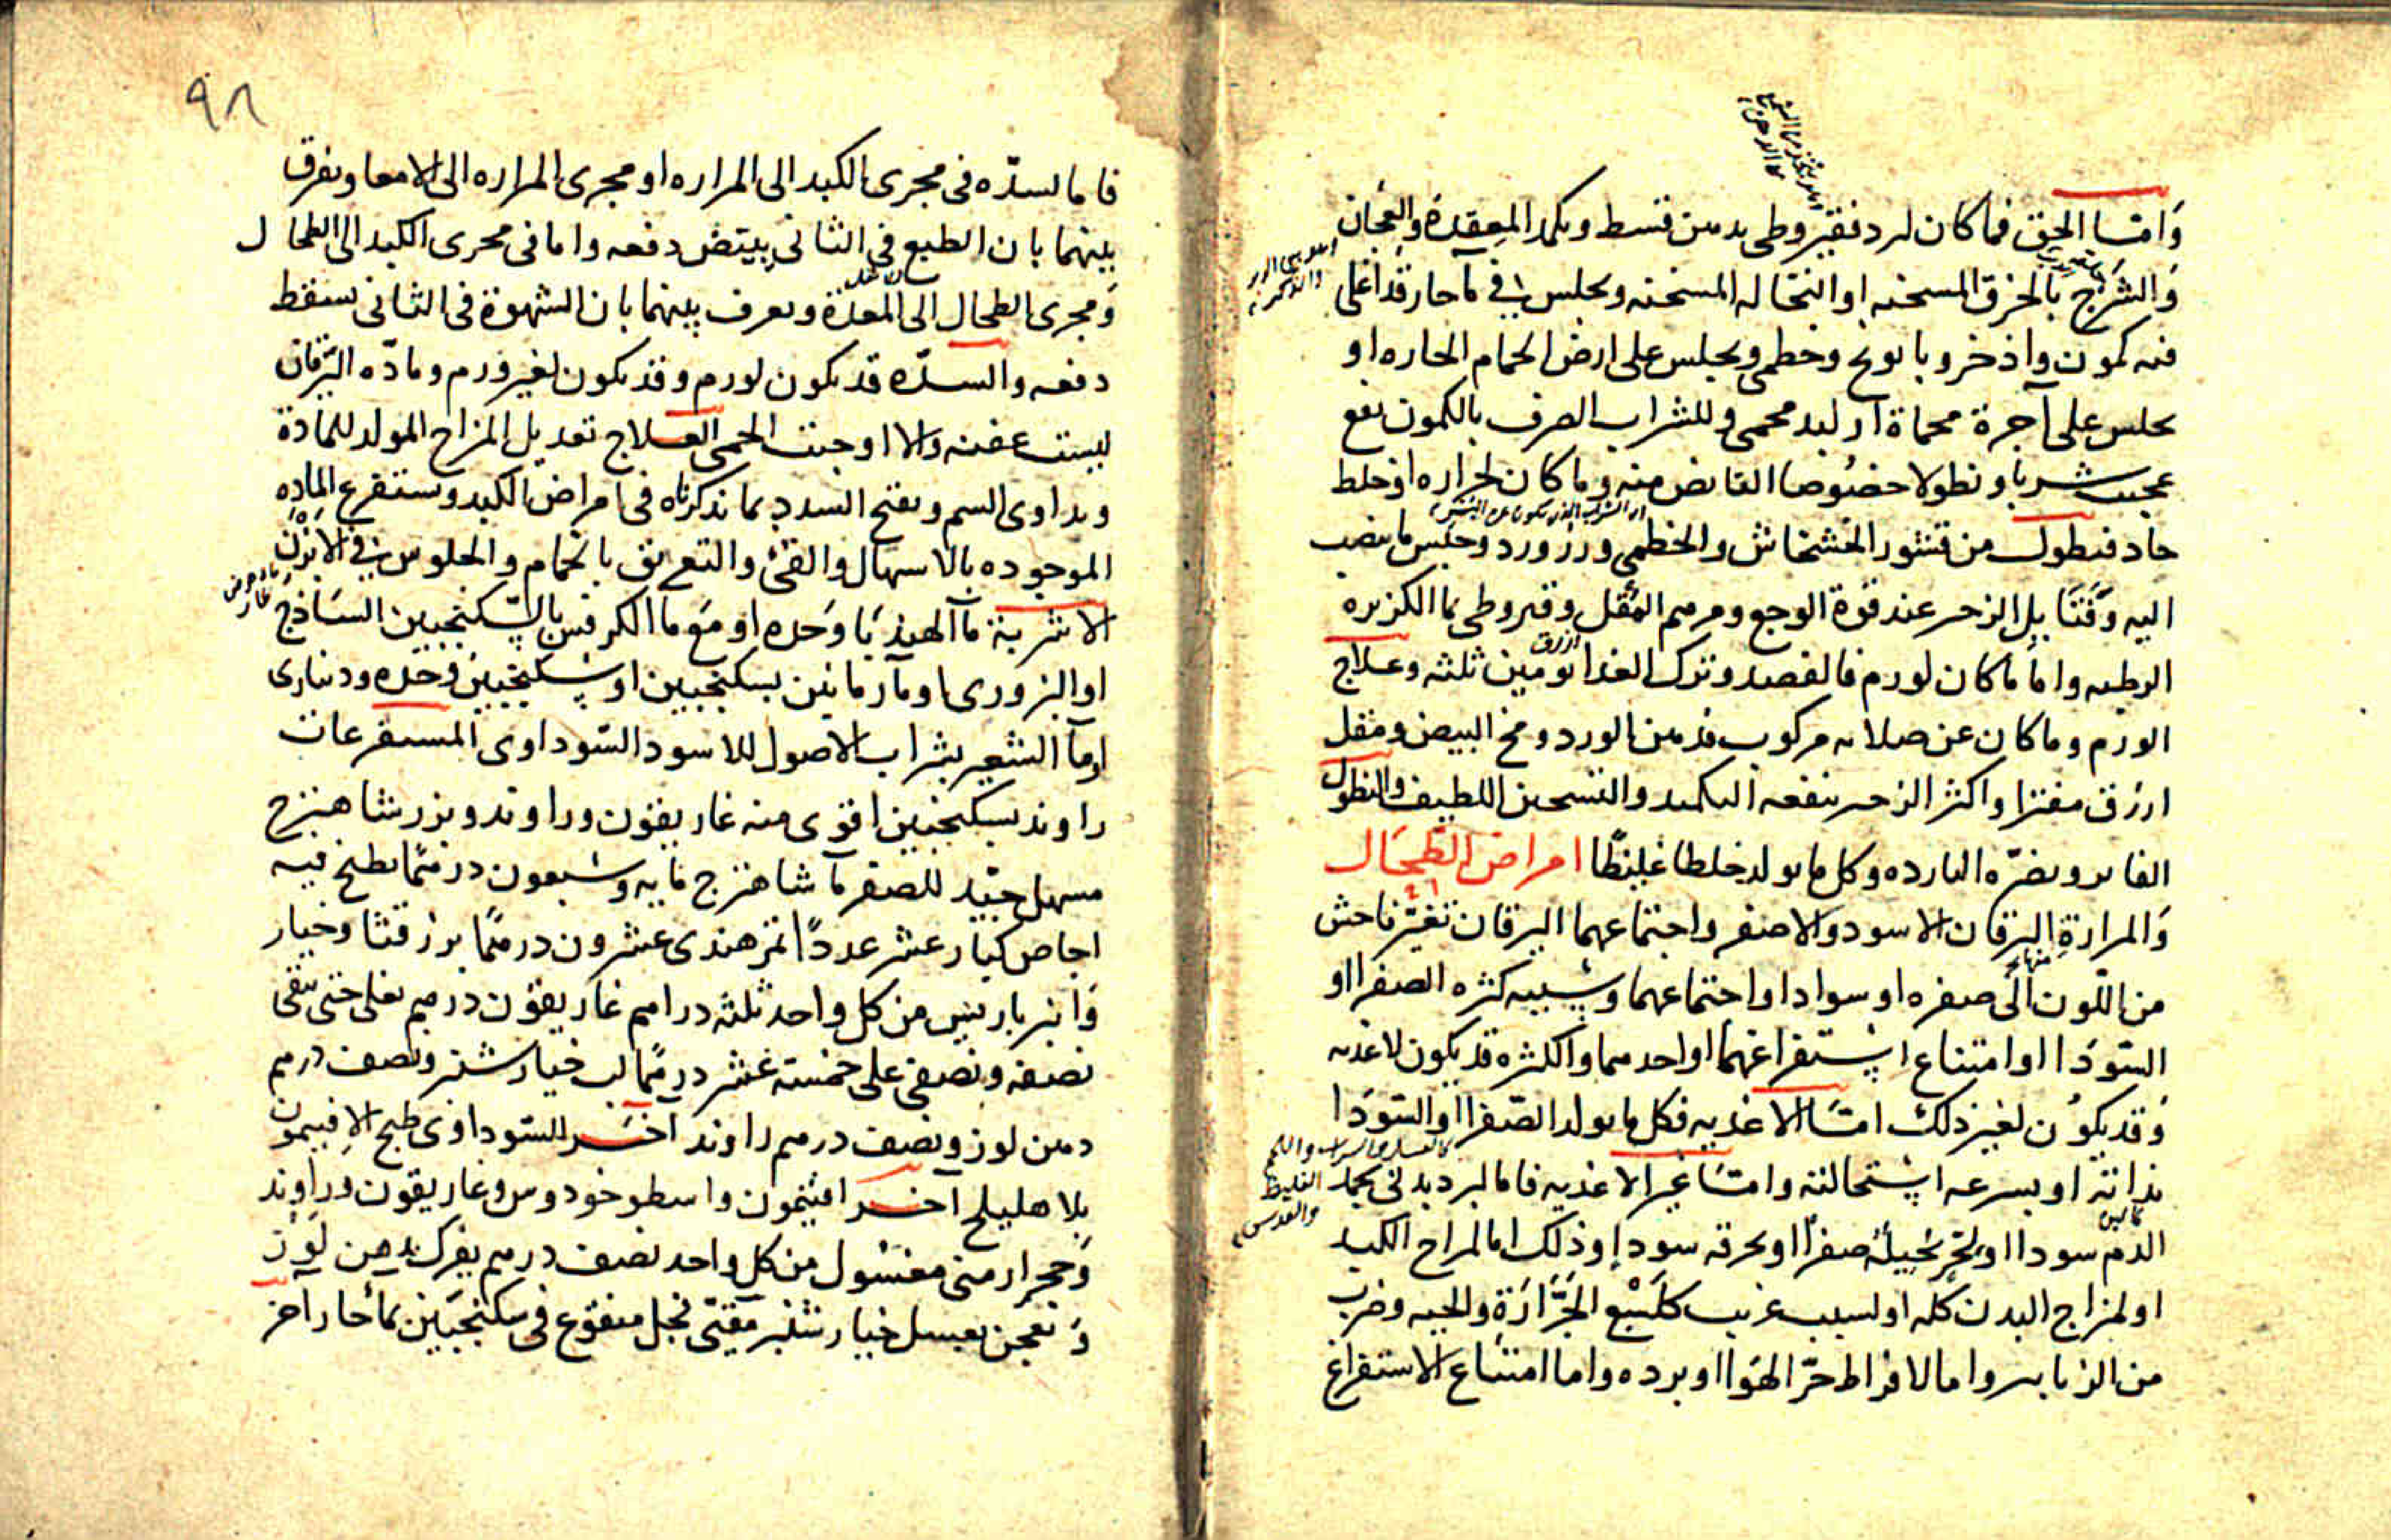 وَامّا الحق فما كان لبرد فقيروطي بدهن قسط ويكمد المقعدة والعجان
وَالشَرَج بالخرق المسخنه او النخاله المسخنه ويجلس في مآ حار قد اغلى
فيه كمون واذخر وبابونج وخطمي ويجلس على ارض الحمام الحاره او
يجلس على آجرة محماة او لبد محمى وللشراب الصرف بالكمون نفع
عجيب شربا ونطولا خصُوصا القابض منه وما كان لحراره او خلط
حاد فنطول من قشور الخشخاش والخطمي وورد وحبس ما ينصب
اليه وَفتَايل الزحير عند قوة الوجع ومرهم المُقل وقيروطي بما الكزبره
الرطبه واما ما كان لورم فالفصد وترك الغدا يومين ثلثه وعلاج
الورم وما كان عن صلابه مركوب فدهن الورد ومخ البيض ومقل
ازرق مفترا واكثر الزحير ينفعه التكميد والتسخين اللطيف والنطول
الفاتر ويضرّه البارده وكل ما يولد خلطا غليظًا امراض الطّحَال
وَالمرارة اليرقان الاسود والاصفر واجتماعهما اليرقان تغيّر فاحش
من اللّون الى صفره او سواد او اجتماعهما وسببه كثره الصفرا او
السّودَا او امتناع استفراغهما او احدهما والكثره قد يكون لاغذيه
وَقد يكوُن لغير ذلك امّا الاغذيه فكل ما يولد الصّفرا او السّودَا
بذاته او بسرعه استحالته وامّا غير الاغذيه فاما لبرد بدني يجمد
الدّم سودا او لحر يُحيلهُ صفرًا او يحرقه سودا وذلك اما لمزاج الكبد
او لمزاج البدن كله او لسبب غريب كلسْع الجَرَّارَة والحيه وضرب
من الزنابير واما لافراط حرّ الهَوا او برده واما امتناع الاستفراغ
٩٨
فاما لسدّه في مجرى الكبد الى المراره او مجرى المراره الى الامعا ويفرق
بينهما بان الطبع في الثاني يبيّض دفعه واما في مجرى الكبد الى الطحال
وَمجرى الطحال الى المعدة ويعرف بينهما بان الشهوة في الثاني تسقط
دفعه والسدّه قد يكون لورم وقد يكون لغير ورم ومادّه اليَرقان
ليست عفنه والا اوجبت الحمى العلاج تعديل المزاج المولد للمادة
ويداوى السم ويفتح السدد بما نذكرناه في امراض الكبد ويستفرغ المادِه
الموجوده بالاسهال والقئ والتعريق بالحمام والجلوس في الابزن
الاشربة مآ الهندبَا وَحده او مَع ما الكرفس بالسّكنجبين السَاذج
او البزوري او مآ رمانين بسكنجبين او سكنجبين وحده ودنياري
او مآ الشعير بشراب الاصول للاسود السّوداوى المستفرغات
راوند بسكنجبين اقوى منه غاريقون وراوند وبزر شاهترج
مسهل جيّد للصفر مآ شاهترج مايه وسبعون درهمًا يطبخ فيه
اجاص كبار عشر عددًا تمر هندى عشرون درهمًا بزر قثا وخيار
وَانبرباريس من كل واحد ثلثه دراهم غاريقون درهم يغلى حتى يبقى
نصفه ويصفى على خمسه عشر درهمًا لب خيارشنبر ونصف درهم
دهن لوز ونصف درهم راوند آخَر للسّوداوى طبخ الافتيمون
بلا هليلج آخر افتيمون واسطوخودوس وغاريقون وراوند
وَحجر ارمنى مغسُول من كل واحد نصف درهم يفرك بدهن لَوْز
وَيعجن بعسل خيارشنبر مقيّئ فجل منقوع فى سكنجبَين بمآ حار آخر